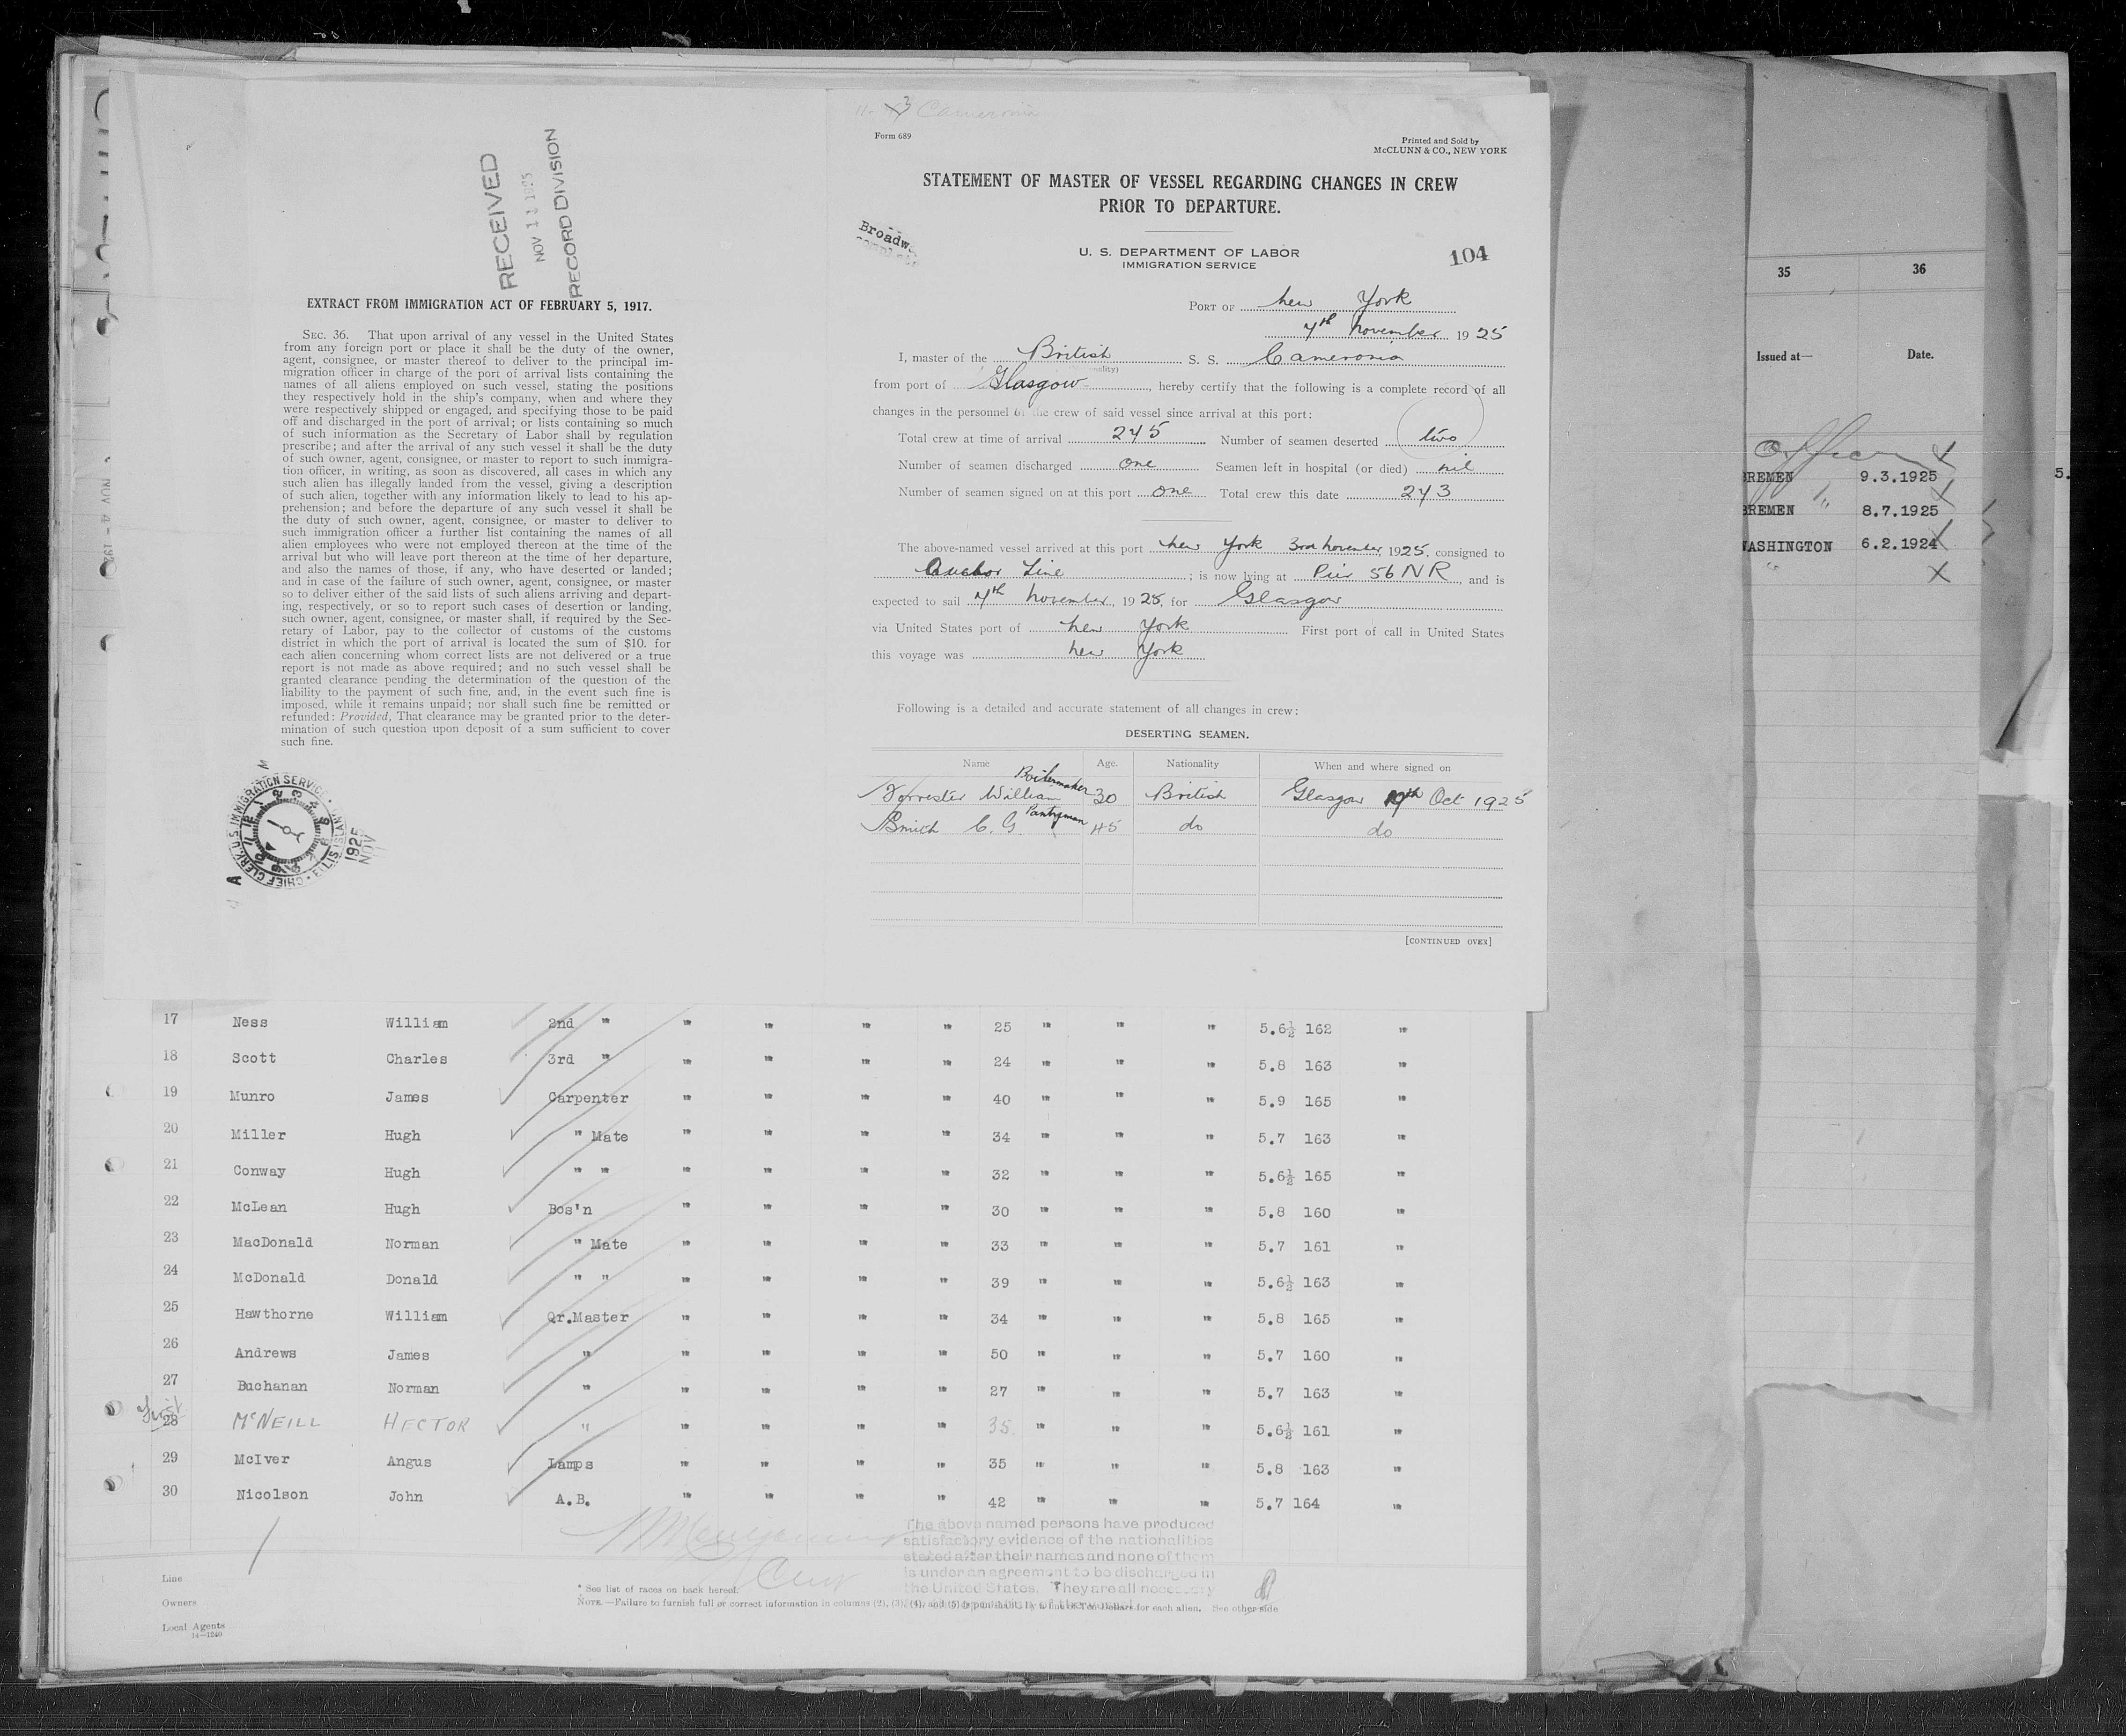 RECEIVED
NOV 11 1925
RECORD DIVISION
EXTRACT FROM IMMIGRATION ACT OF FEBRUARY 5, 1917.
SEC. 36. That upon arrival of any vessel in the United States
from any foreign port or place it shall be the duty of the owner,
agent, consignee, or master thereof to deliver to the principal im-
migration officer in charge of the port of arrival lists containing the
names of all aliens employed on such vessel, stating the positions
they respectively hold in the ship's company, when and where they
were respectively shipped or engaged, and specifying those to be paid
off and discharged in the port of arrival; or lists containing so much
of such information as the Secretary of Labor shall by regulation
prescribe; and after the arrival of any such vessel it shall be the duty
of such owner, agent, consignee, or master to report to such immigra-
tion officer, in writing, as soon as discovered, all cases in which any
such alien has illegally landed from the vessel, giving a description
of such alien, together with any information likely to lead to his ap-
prehension; and before the departure of any such vessel it shall be
the duty of such owner, agent, consignee, or master to deliver to
such immigration officer a further list containing the names of all
alien employees who were not employed thereon at the time of the
arrival but who will leave port thereon at the time of her departure,
and also the names of those, if any, who have deserted or landed;
and in case of the failure of such owner, agent, consignee, or master
so to deliver either of the said lists of such aliens arriving and depart-
ing, respectively, or so to report such cases of desertion or landing,
such owner, agent, consignee, or master shall, if required by the Sec-
retary of Labor, pay to the collector of customs of the customs
district in which the port of arrival is located the sum of $10. for
each alien concerning whom correct lists are not delivered or a true
report is not made as above required; and no such vessel shall be
granted clearance pending the determination of the question of the
liability to the payment of such fine, and, in the event such fine is
imposed, while it remains unpaid; nor shall such fine be remitted or
refunded: Provided, That clearance may be granted prior to the deter-
mination of such question upon deposit of a sum sufficient to cover
such fine.
CHIEF CLERK, U.S. IMMIGRATION SERVICE
1925
NOV
Cameronia
Form 689
Printed and Sold by
McCLUNN & CO., NEW YORK
STATEMENT OF MASTER OF VESSEL REGARDING CHANGES IN CREW
PRIOR TO DEPARTURE.
Broadw
U. S. DEPARTMENT OF LABOR
IMMIGRATION SERVICE
104
PORT OF New York
7th November 1925
I, master of the British S. S. Cameronia
from port of Glasgow, hereby certify that the following is a complete record of all
changes in the personnel of the crew of said vessel since arrival at this port:
Total crew at time of arrival 245 Number of seamen deserted two
Number of seamen discharged one Seamen left in hospital (or died) nil
Number of seamen signed on at this port one Total crew this date 243
The above-named vessel arrived at this port New York 3rd November, 1925, consigned to
Anchor Line; is now lying at Pier 56 NR and is
expected to sail 7th November, 1925, for Glasgow
via United States port of New York First port of call in United States
this voyage was New York
Following is a detailed and accurate statement of all changes in crew:
DESERTING SEAMEN.
Name Age. Nationality When and where signed on
Forrester William Boilermaker 30 British Glasgow 19th Oct 1925
Smith C. G. Pantryman 45 do do
[CONTINUED OVER]
17 Ness William 2nd " " " " " 25 " " " 5.6½ 162 "
18 Scott Charles 3rd " " " " " 24 " " " 5.8 163 "
19 Munro James Carpenter " " " " 40 " " " 5.9 165 "
20 Miller Hugh " Mate " " " " 34 " " " 5.7 163 "
21 Conway Hugh " " " " " " 32 " " " 5.6½ 165 "
22 McLean Hugh Bos'n " " " " 30 " " " 5.8 160 "
23 MacDonald Norman " Mate " " " " 33 " " " 5.7 161 "
24 McDonald Donald " " " " " " 39 " " " 5.6½ 163 "
25 Hawthorne William Qr.Master " " " " 34 " " " 5.8 165 "
26 Andrews James " " " " " 50 " " " 5.7 160 "
27 Buchanan Norman " " " " " 27 " " " 5.7 163 "
First 28 McNEILL HECTOR " " " " " 35 " " " 5.6½ 161 "
29 McIver Angus Lamps " " " " 35 " " " 5.8 163 "
30 Nicolson John A.B. " " " " 42 " " " 5.7 164 "
The above named persons have produced
satisfactory evidence of the nationalities
stated after their names and none of them
is under an agreement to be discharged in
the United States. They are all necessary
Line
Owners
Local Agents
14—1240
* See list of races on back hereof.
NOTE.—Failure to furnish full or correct information in columns (2), (3), (4), and (5) is punishable by a fine of Ten Dollars for each alien. See other side
35 36
Issued at— Date.
Officer
BREMEN 9.3.1925
BREMEN " 8.7.1925
WASHINGTON 6.2.1924
"
5.